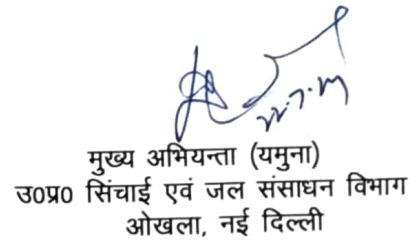 मुख्य अभियन्ता (यमुना)
उ०प्र० सिंचाई एवं जल संसाधन विभाग
ओखला, नई दिल्ली